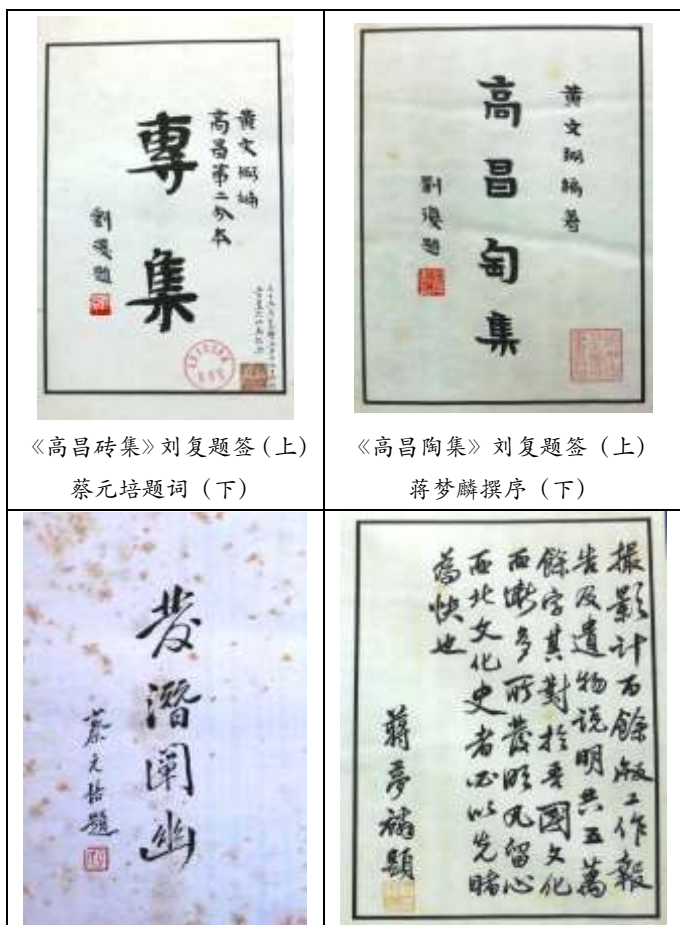 黃文弼編
高昌第二分本
專集
劉復題
黃文弼編著
高昌匋集
劉復題
《高昌砖集》刘复题签（上）
蔡元培题词（下）
《高昌陶集》刘复题签（上）
蒋梦麟撰序（下）
發潛闡幽
蔡元培題
撮影計百餘版工作報
告及遺物説明共五萬
餘字其對於吾國文化
西漸多所發明凡留心
西北文化史者必以先睹
為快也
蔣夢麟題